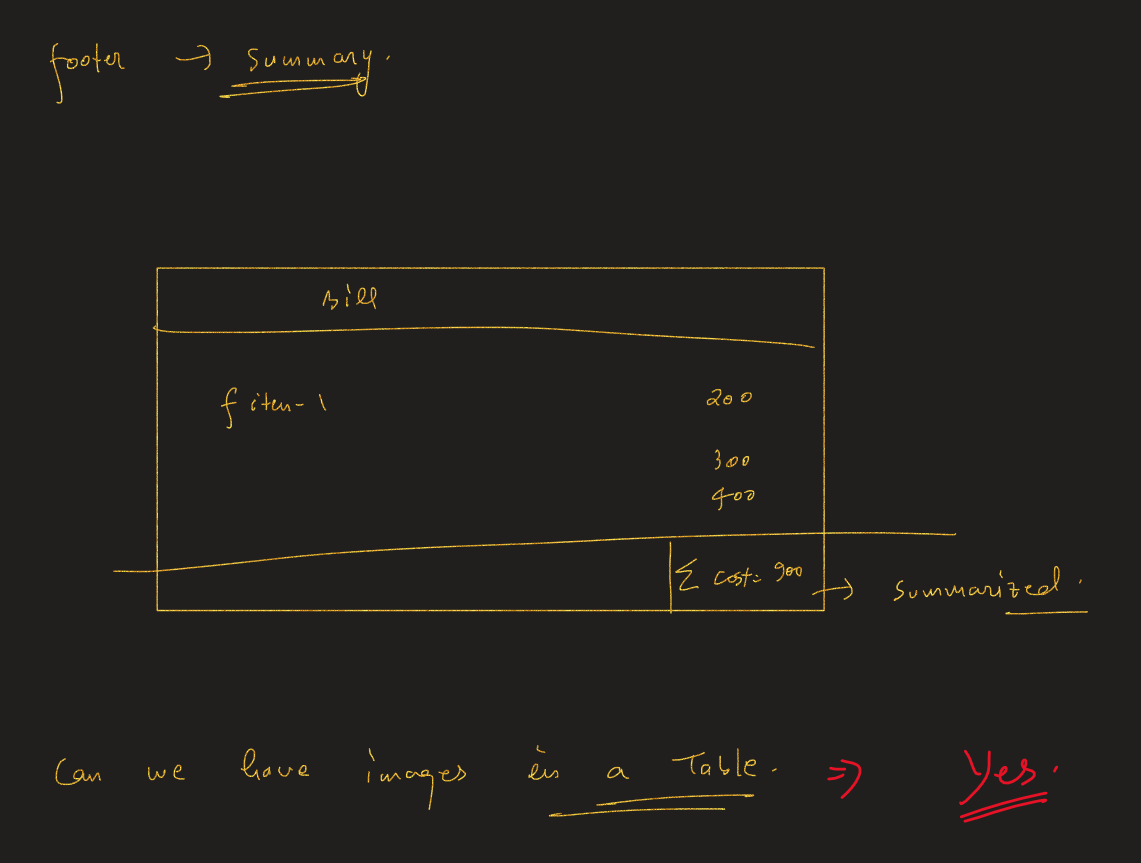 footer → summary.
Bill
f item-1 200
300
400
∑ cost= 900 → summarized.
Can we have images in a Table. ⇒ Yes.